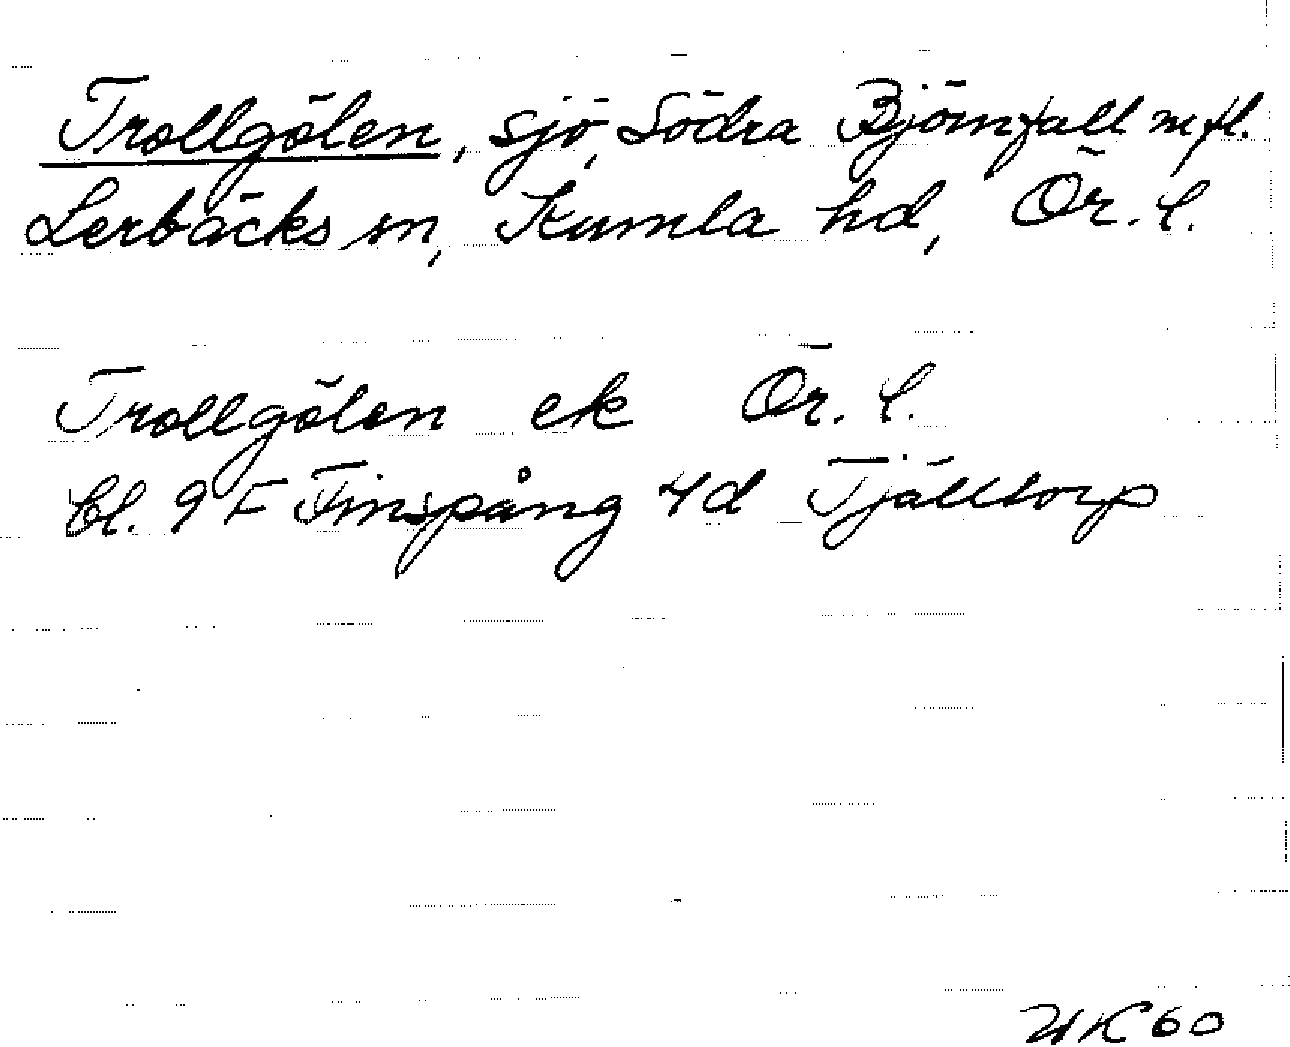 Trollgölen, sjö, Södra Björnfall m fl.
Lerbäcks sn, Kumla hd, Ör. l.
Trollgölen ek Ör. l.
bl. 9 F Finspång 4d Tjälltorp
60